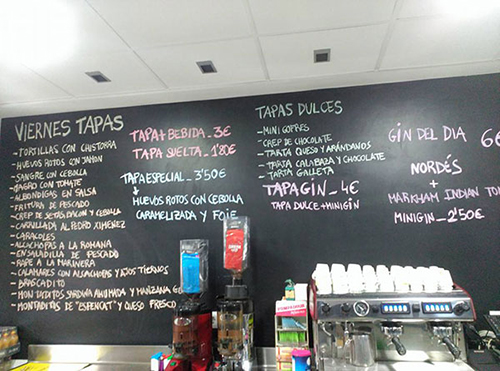 VIERNES TAPAS
- TORTILLAS CON CHISTORRA
- HUEVOS ROTOS CON JAMON
- SANGRE CON CEBOLLA
- MAGRO CON TOMATE
- ALBONDIGAS EN SALSA
- FRITURA DE PESCADO
- CREP DE SETAS, BACON Y CEBOLLA
- CARRILLADA AL PEDRO XIMENEZ
- CARACOLES
- ALCACHOFAS A LA ROMANA
- ENSALADILLA DE PESCADO
- RAPE A LA MARINERA
- CALAMARES CON ALCACHOFAS Y AJOS TIERNOS
- BRASCADITO
- MONTADITOS SARDINA AHUMADA Y MANZANA
- MONTADITOS DE "ESPENCAT" Y QUESO FRESCO
TAPA + BEBIDA _ 3€
TAPA SUELTA _ 1'80€
TAPA ESPECIAL _ 3'50€
HUEVOS ROTOS CON CEBOLLA
CARAMELIZADA Y FOIE
TAPAS DULCES
- MINI GOFRES
- CREP DE CHOCOLATE
- TARTA QUESO Y ARÁNDANOS
- TARTA CALABAZA Y CHOCOLATE
- TARTA GALLETA
TAPAGIN _ 4€
TAPA DULCE + MINIGIN
GIN DEL DIA 6€
NORDÉS
+
MARKHAM INDIAN TO
MINIGIN _ 2'50€